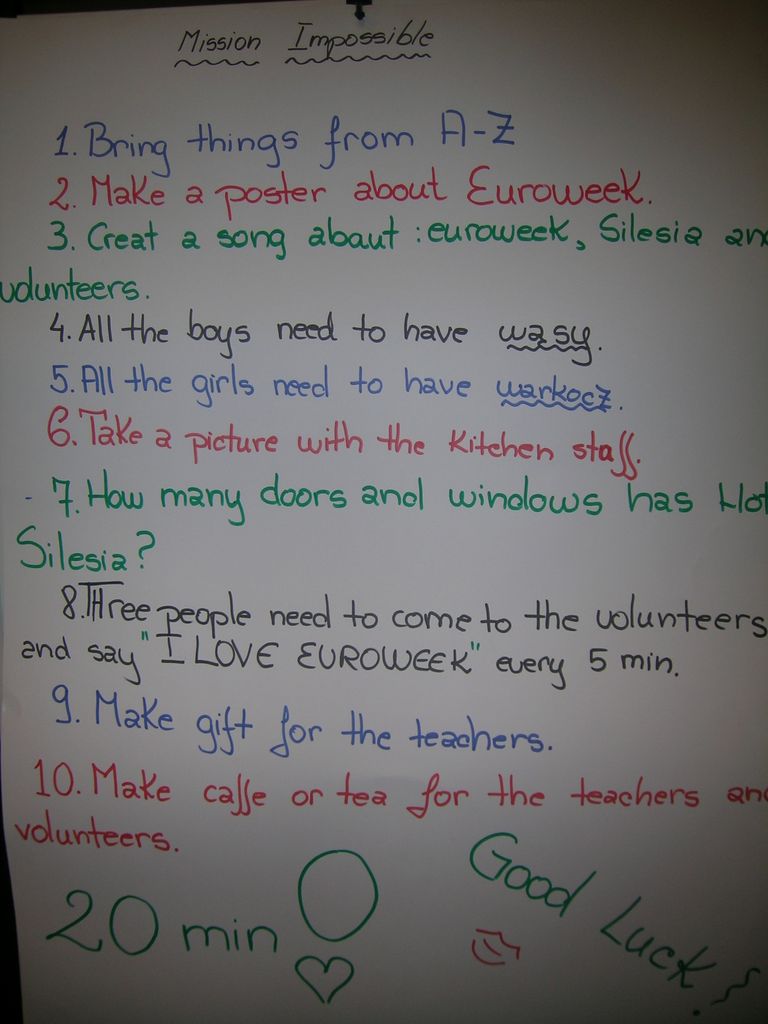 Mission Impossible
1. Bring things from A-Z
2. Make a poster about Euroweek.
3. Creat a song abaut : euroweek, Silesia an
volunteers.
4. All the boys need to have wąsy.
5. All the girls need to have warkocz.
6. Take a picture with the kitchen staff.
- 7. How many doors and windows has Hot
Silesia?
8. THree people need to come to the volunteers
and say "I LOVE EUROWEEK" every 5 min.
9. Make gift for the teachers.
10. Make caffe or tea for the teachers and
volunteers.
20 min
Good Luck!